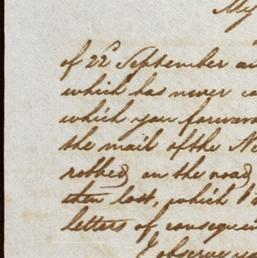 My
of 22d September an
which has never co
which you forward
the mail of the Ne
robbed on the road
then lost, which I
letters of consequen
I observe yo